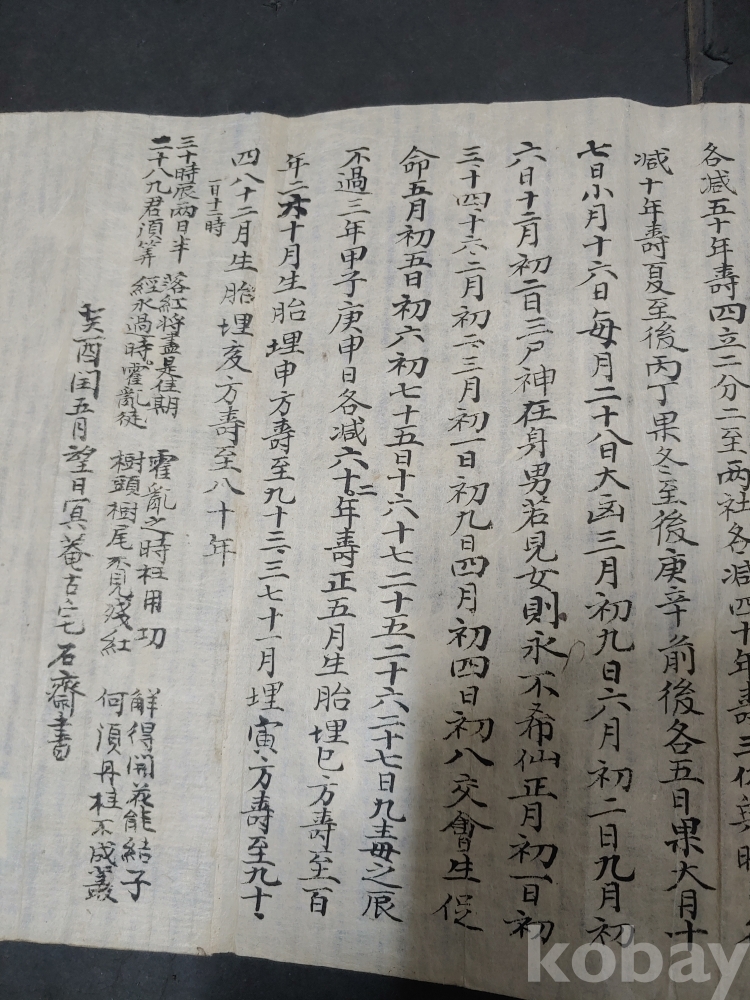 各減五十年壽四立二分二至两社各減四十年壽三伏
減十年壽夏至後丙丁果冬至後庚辛前後各五日果大月十
七日小月十六日每月二十八日大凶三月初九日六月初二日九月初
六日十二月初二日三尸神在身男若見女則永不希仙正月初一日初
三十四十六二月初二三月初一日初九日四月初四日初八交會生促
命五月初五日初六初七十五日十六十七二十五二十六二十七日九毒之辰
不過三年甲子庚申日各減六十二年壽正五月生胎埋巳方壽至百
年二六十月生胎埋申方壽至九十三三七十一月埋寅方壽至九十
四八十二月生胎埋亥方壽至八十年
三十時辰兩日半 落紅將盡是佳期 霍亂之時枉用功 解得開花能結子
一日十二時
二十八九君須筭 經水過時霍亂徒 樹頭樹尾不見殘紅 何須丹桂不成叢
癸酉閏五月望日冥菴古宅石齋書
kobay